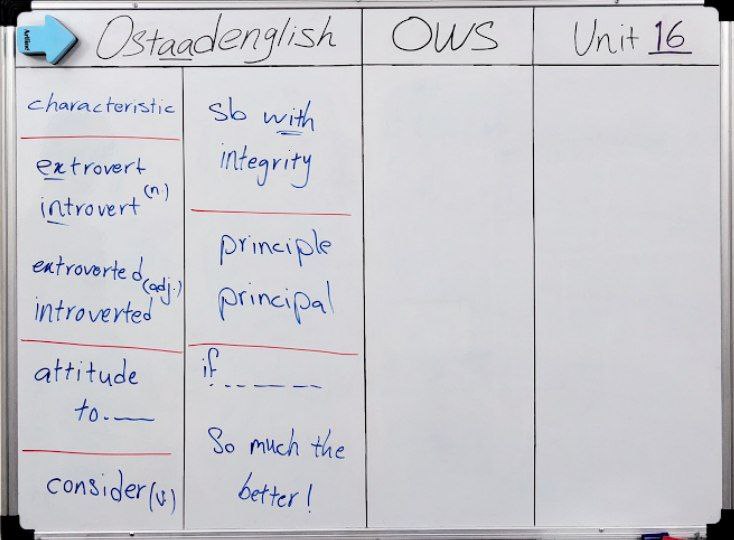 Ostaadenglish
OWS
Unit 16
characteristic
extrovert
introvert (n.)
extroverted
introverted (adj.)
attitude
to.___
consider (v)
sb with
integrity
principle
principal
if _ _ _ _ _ _
So much the
better!